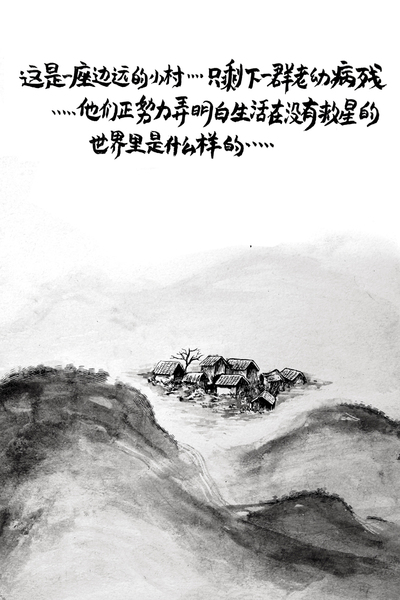 这是一座边远的小村····只剩下一群老幼病残
·····他们正努力弄明白生活在没有救星的
世界里是什么样的·····